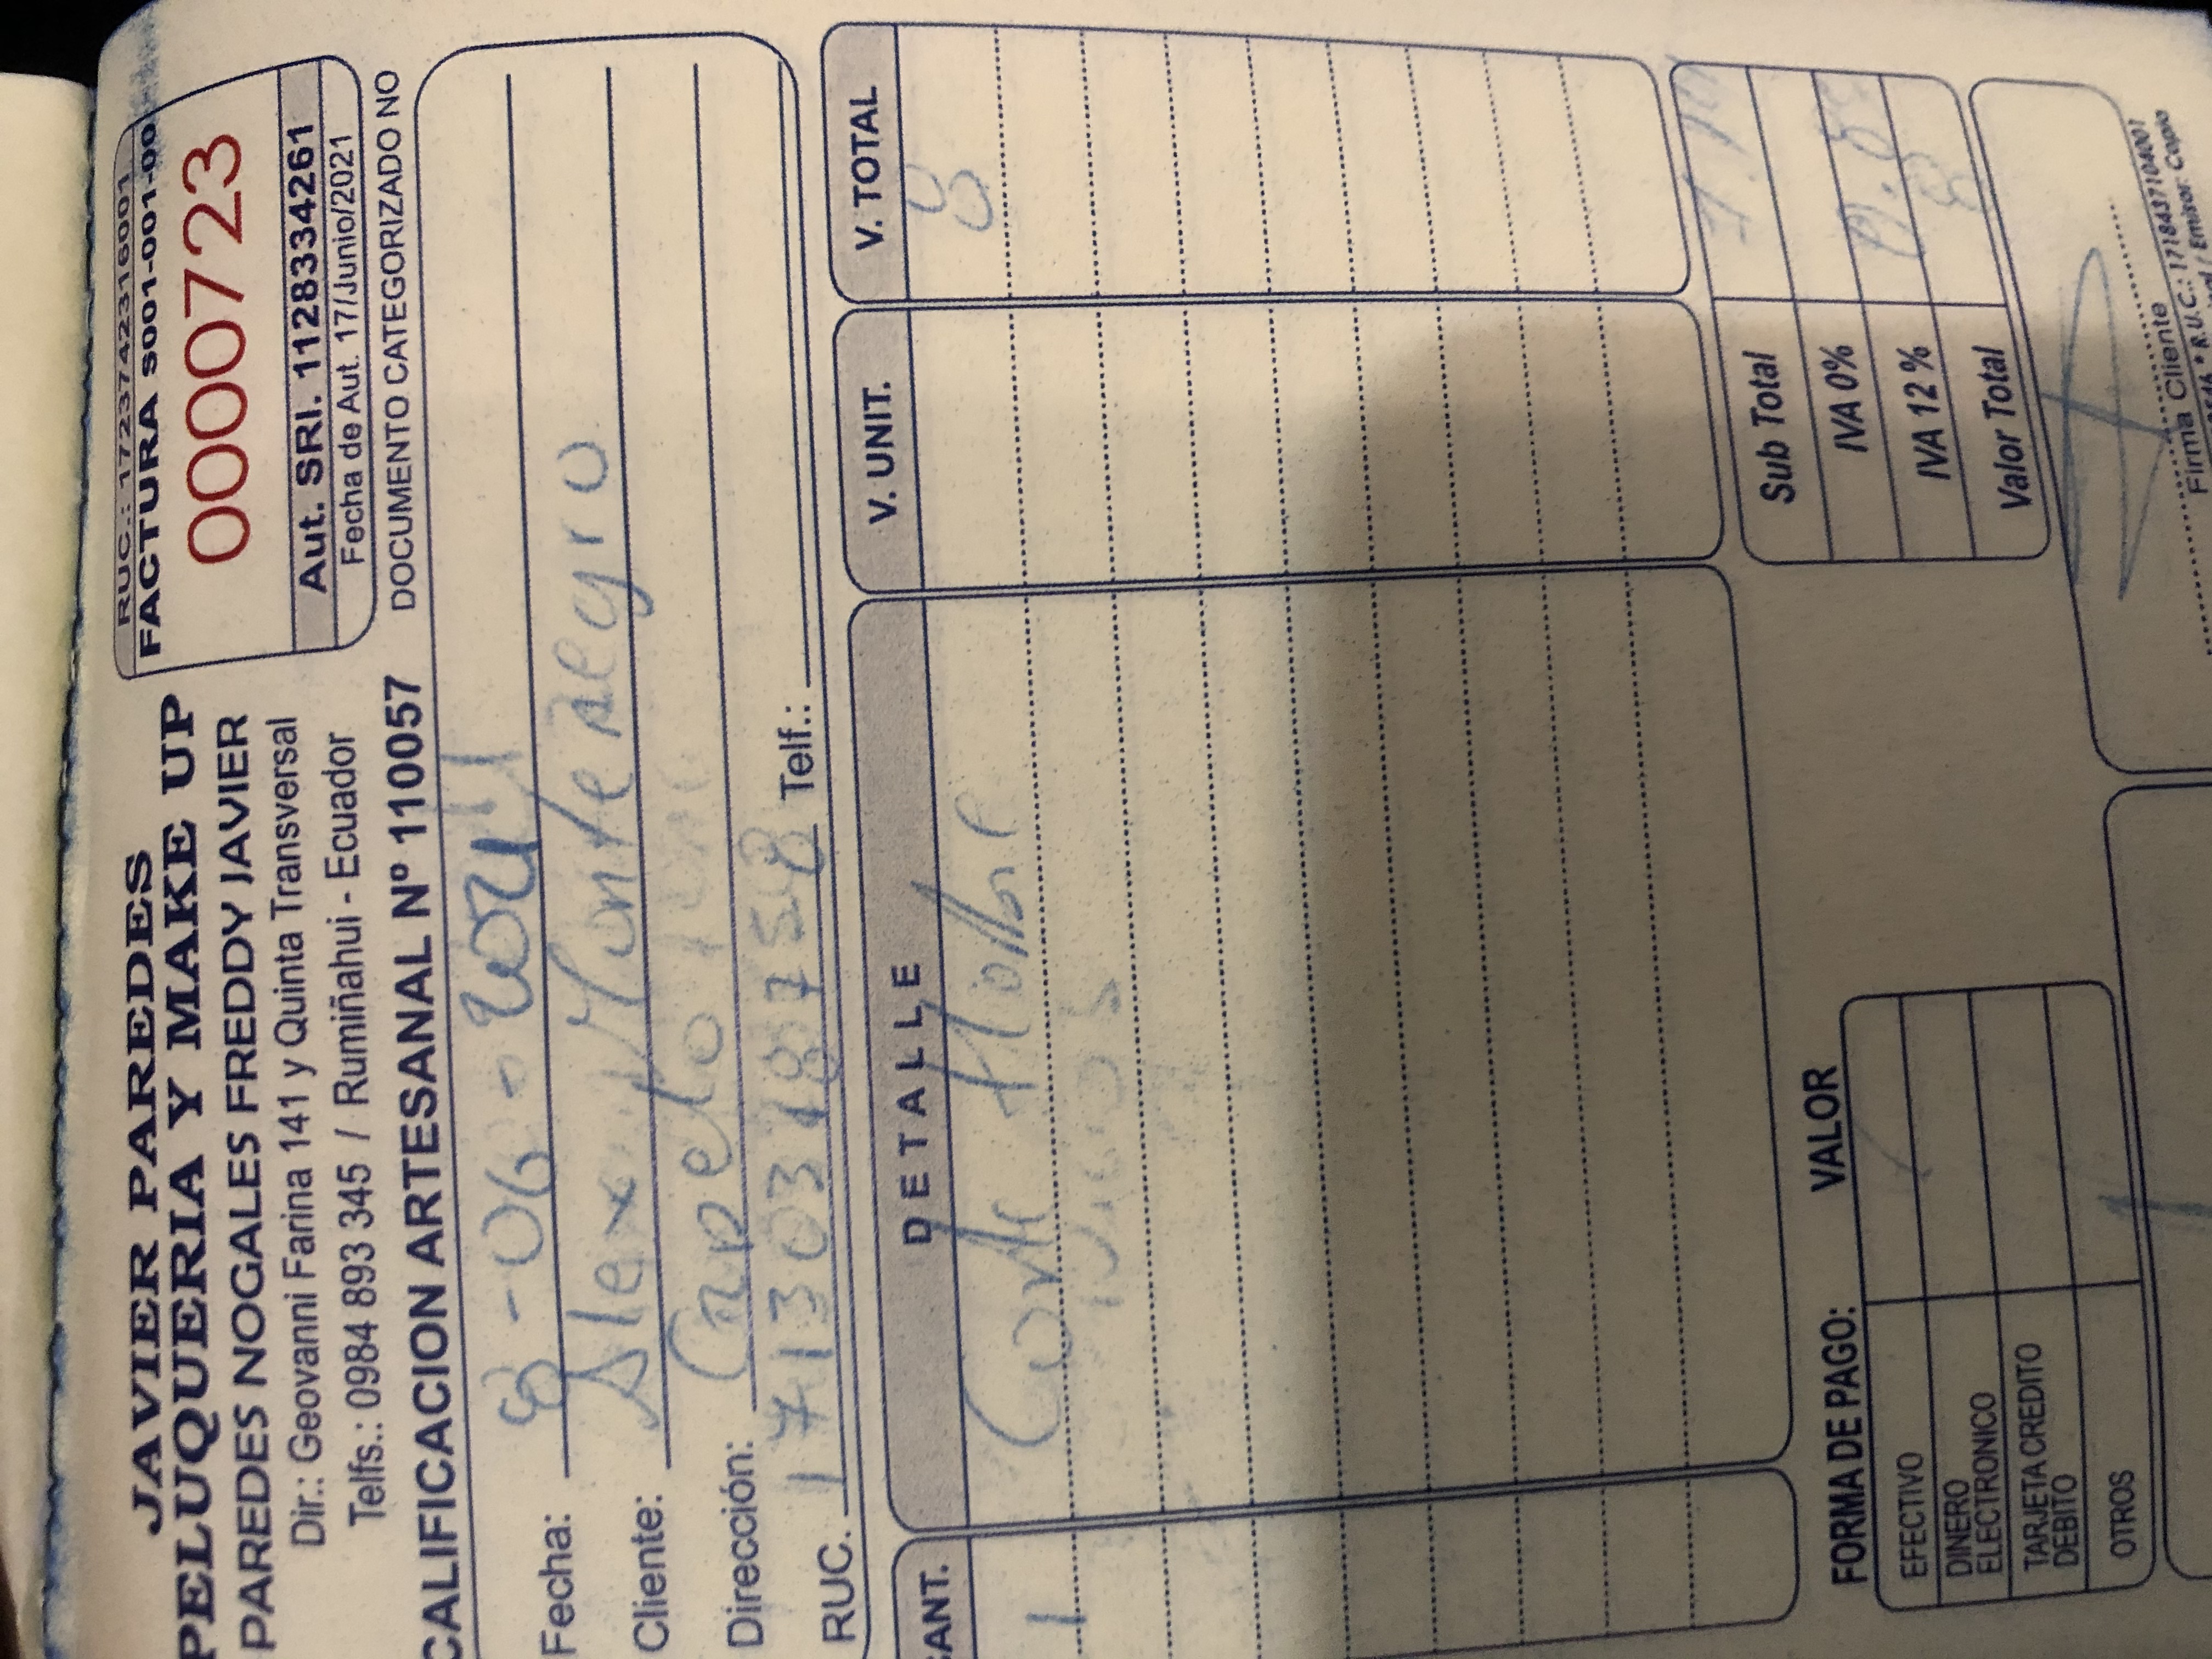 JAVIER PAREDES
PELUQUERIA Y MAKE UP
PAREDES NOGALES FREDDY JAVIER
Dir.: Geovanni Farina 141 y Quinta Transversal
Telfs.: 0984 893 345 / Rumiñahui - Ecuador
CALIFICACION ARTESANAL Nº 110057
RUC.: 1723742316001
FACTURA S001-001-00
0000723
Aut. SRI. 1128334261
Fecha de Aut. 17/Junio/2021
DOCUMENTO CATEGORIZADO NO
Fecha: 8-06-2021
Cliente: Alex Montenegro
Dirección: Capelo
RUC. Telf.:
CANT. DETALLE V. UNIT. V. TOTAL
1 Corte Hombre 8
Sub Total
IVA 0%
IVA 12 %
Valor Total 8
FORMA DE PAGO: VALOR
EFECTIVO
DINERO
ELECTRONICO
TARJETA CREDITO
DEBITO
OTROS
Firma Cliente
* R.U.C.: 1718437104001
/ Emisor: Copia